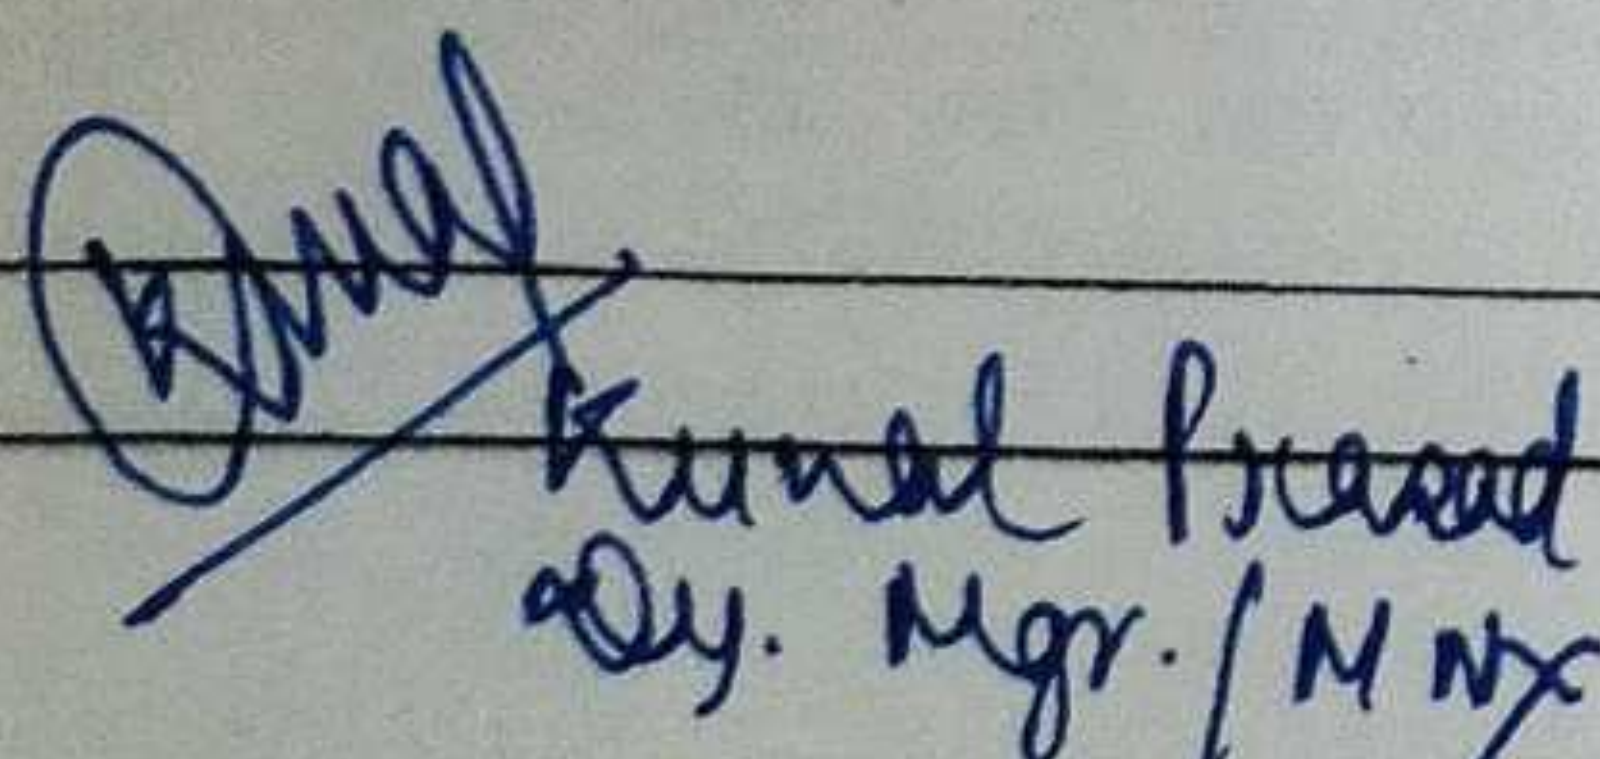 Kunal
Kunal Prasad
Dy. Mgr. / M